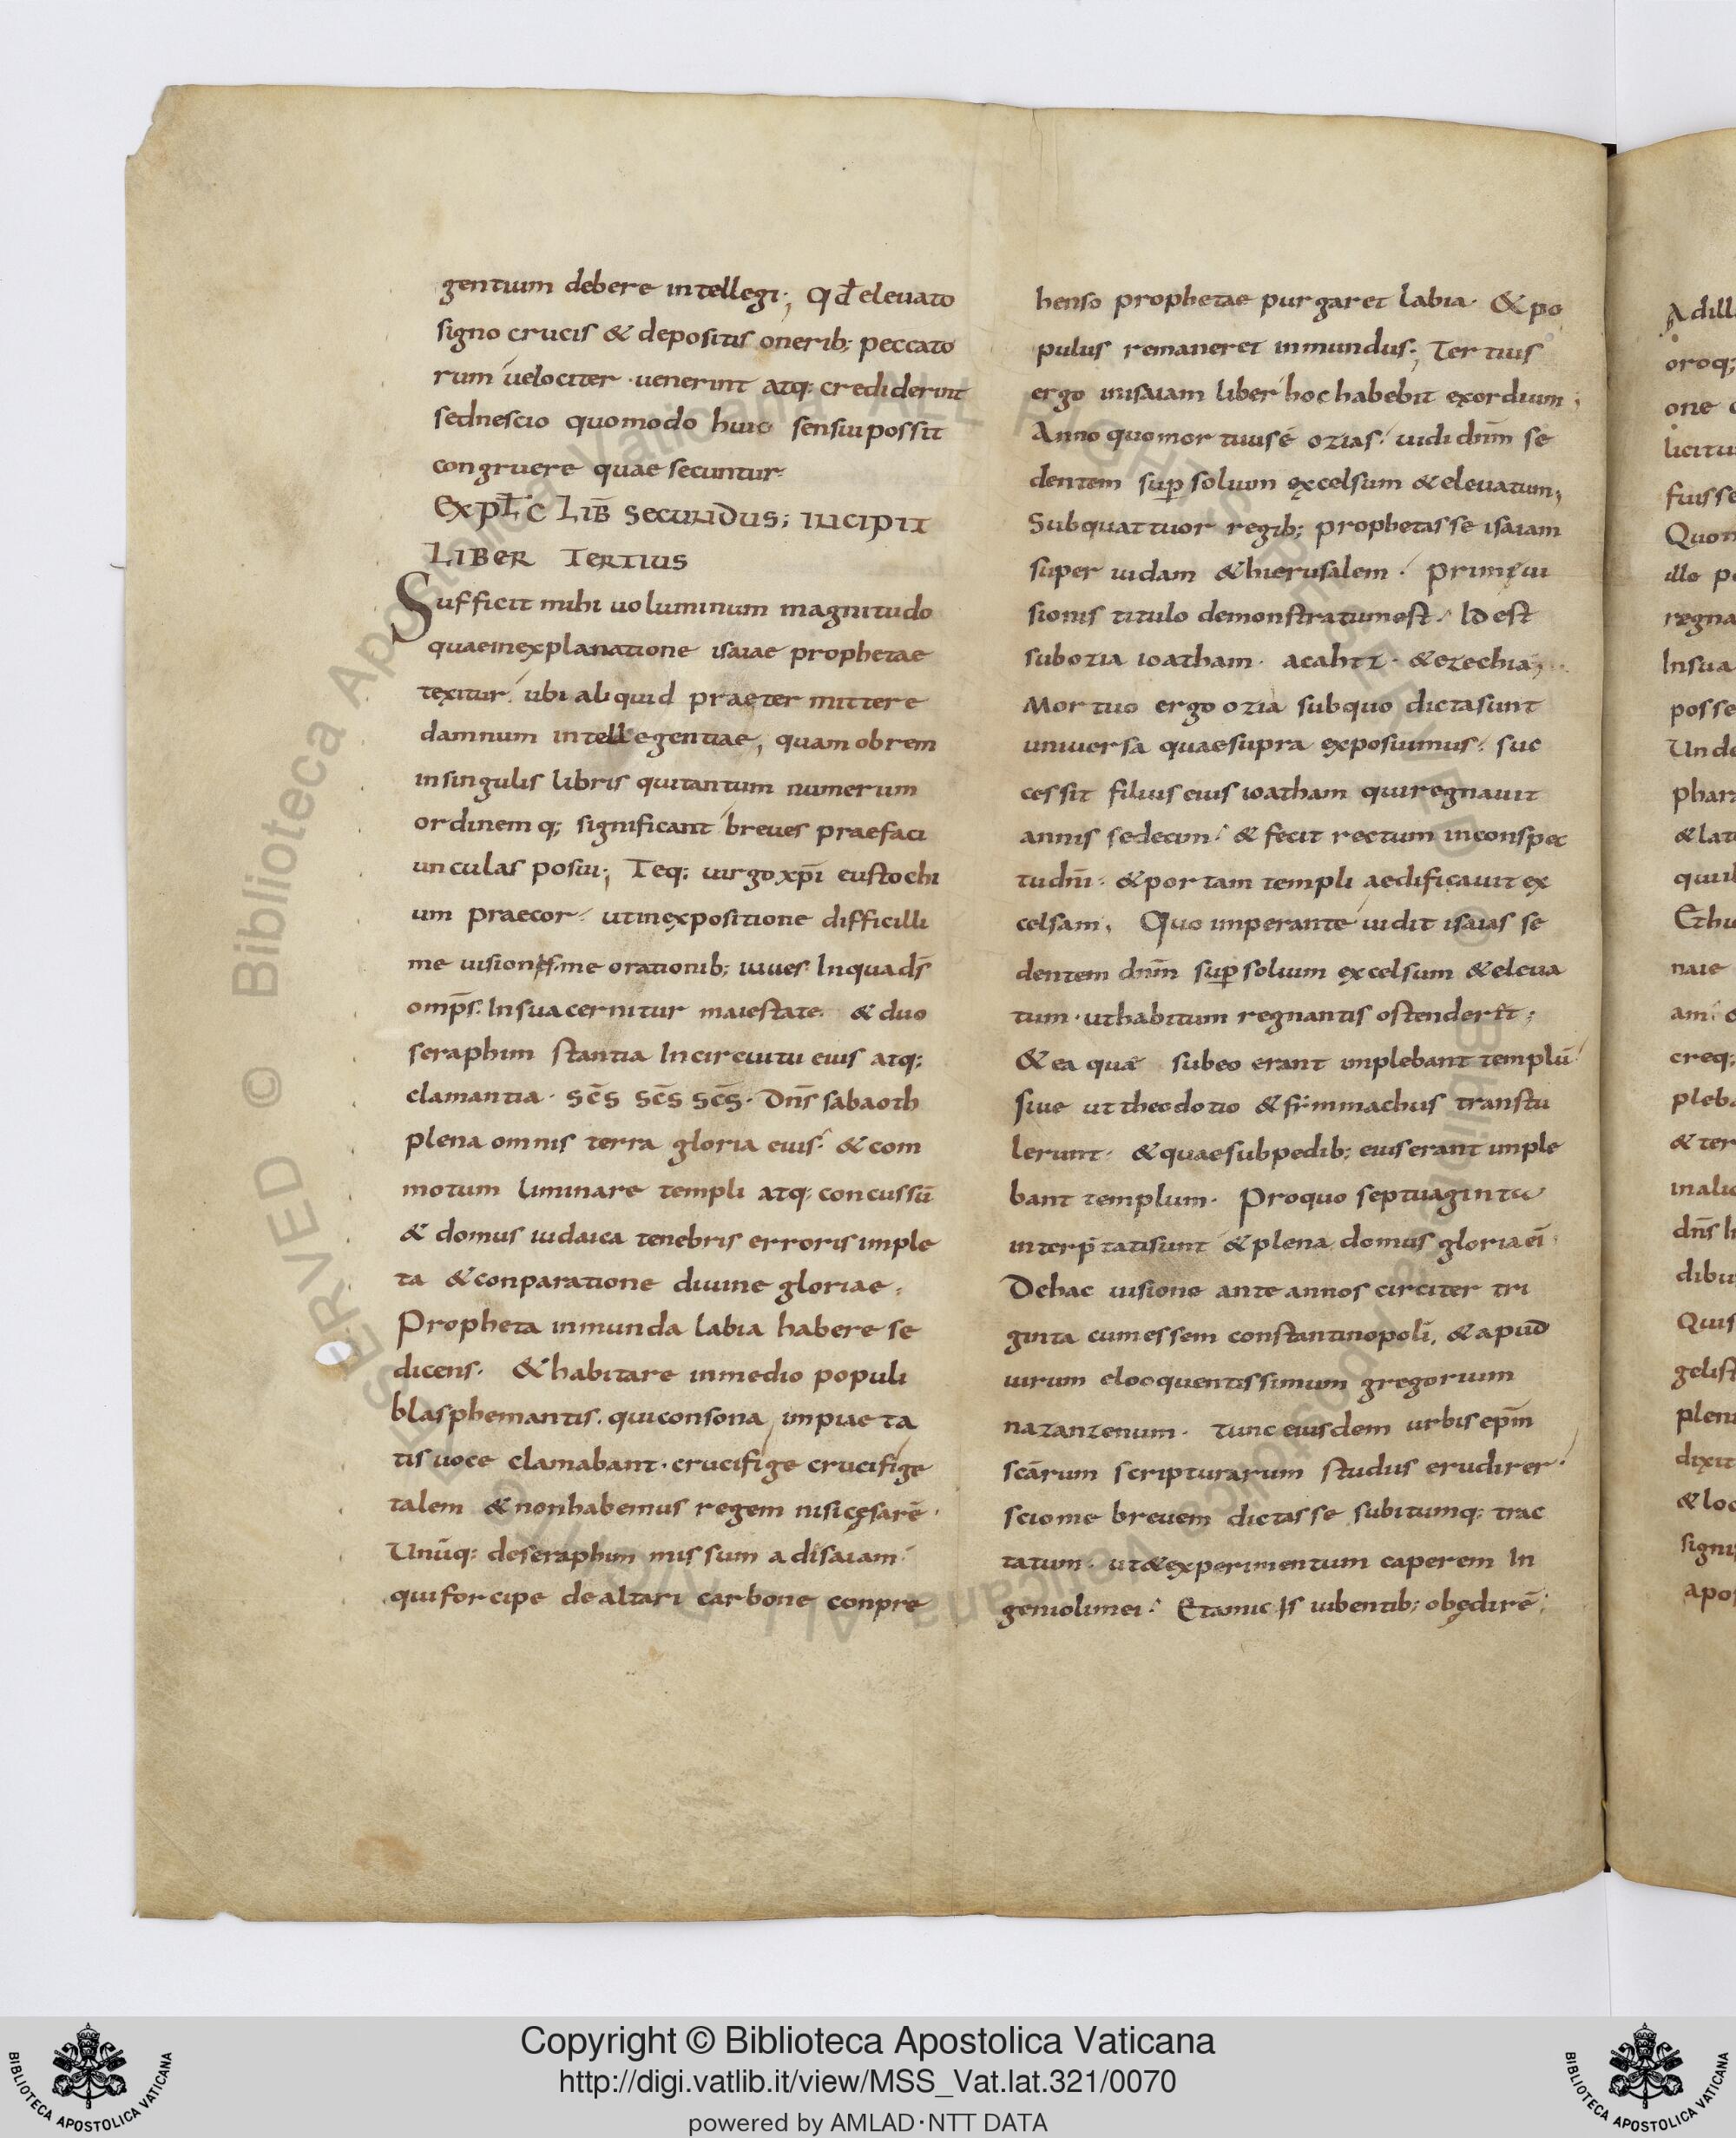 gentium debere intellegi; Qđ eleuato
signo crucis & depositis onerib; peccato
rum uelociter · uenerint atq; crediderint
sednescio quomodo huic sensui possit
congruere quae secuntur·
Expłc Lib̄ Secundus; incipit
Liber Tertius
Sufficit mihi uoluminum magnitudo
quaeinexplanatione isaiae prophetae
texitur. ubi aliquid praetermittere
damnum intellegentiae, quamobrem
insingulis libris quitantum numerum
ordinemq; significant breues praefaci
unculas posui; Teq; uirgo xp̄i eustochi
um praecor. utinexpositione difficilli
me uisionis. me orationib; iuues· Inquad̄s
omp̄s. Insua cernitur maiestate. & duo
seraphim stantia Incircuitu eius atq;
clamantia · Sc̄s Sc̄s Sc̄s · Dn̄s sabaoth
plena omnis terra gloria eius. & com
motum liminare templi atq; concussū
& domus iudaica tenebris erroris imple
ta & conparatione diuine gloriae.
Propheta inmunda labia habere se
dicens. & habitare inmedio populi
blasphemantis. quiconsona impiaeta
tis uoce clamabant · crucifige crucifige
talem & nonhabemus regem nisi cęsarē ·
Unūq; deseraphim missum ad isaiam
quiforcipe dealtari carbone conpre
henso prophetae purgaret labia. & po
pulus remaneret inmundus; Tertius
ergo inisaiam liber hoc habebit exordium;
Anno quomortuus ē ozias. uidi dn̄m se
dentem sup solium excelsum & eleuatum;
Subquattuor regib; prophetasse isaiam
super iudam & hierusalem. Primę ui
sionis titulo demonstratumest. Id est
subozia ioatham · acahtz · & ezechia;
Mortuo ergo ozia subquo dicta sunt
uniuersa quae supra exposuimus. suc
cessit filius eius ioatham quiregnauit
annis sedecim. & fecit rectum inconspec
tu dn̄i. & portam templi aedificauit ex
celsam. Quo imperante uidit isaias se
dentem dn̄m sup solium excelsum & eleua
tum · uthabitum regnantis ostenderēt;
& ea quae subeo erant implebant templū
siue ut theodotio & simmachus transtu
lerunt. & quaesubpedib; eius erant imple
bant templum. Proquo septuaginta
interp̄tatisunt & plena domus gloria eī
Dehac uisione ante annos circiter tri
ginta cumessem constantinopoli. & apud
uirum eloquentissimum gregorium
nazanzenum · tunc eiusdem urbis ep̄m
scārum scripturarum studiis erudirer.
sciome breuem dictasse subitumq; trac
tatum · ut & experimentum caperem In
genioli mei. Et amicis iubentib; obędirē
Copyright © Biblioteca Apostolica Vaticana
http://digi.vatlib.it/view/MSS_Vat.lat.321/0070
powered by AMLAD·NTT DATA
BIBLIOTECA APOSTOLICA VATICANA
BIBLIOTECA APOSTOLICA VATICANA